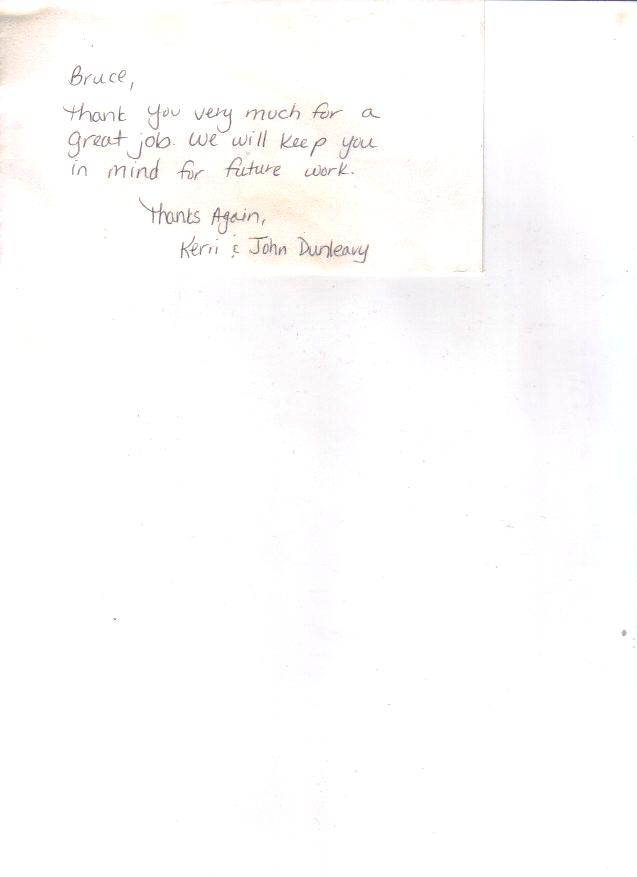 Bruce,
Thank you very much for a
great job. We will keep you
in mind for future work.
Thanks Again,
Kerri & John Dunleavy